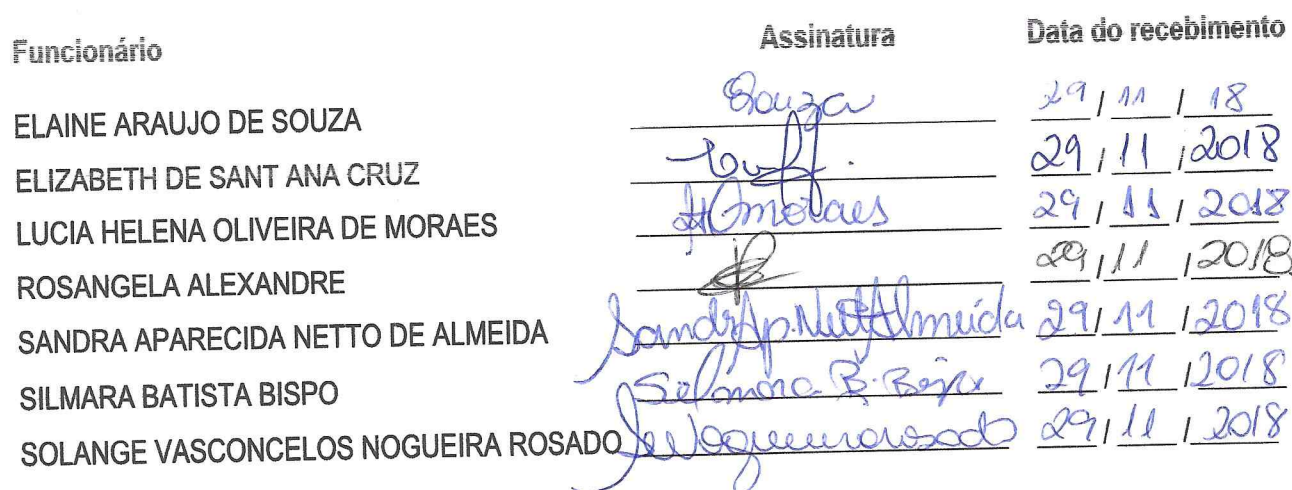 Funcionário Assinatura Data do recebimento
ELAINE ARAUJO DE SOUZA Souza 29 / 11 / 18
ELIZABETH DE SANT ANA CRUZ 29 / 11 / 2018
LUCIA HELENA OLIVEIRA DE MORAES moraes 29 / 11 / 2018
ROSANGELA ALEXANDRE 29 / 11 / 2018
SANDRA APARECIDA NETTO DE ALMEIDA Sandra Ap. Nett Almeida 29 / 11 / 2018
SILMARA BATISTA BISPO Silmara B. Bispo 29 / 11 / 2018
SOLANGE VASCONCELOS NOGUEIRA ROSADO 29 / 11 / 2018